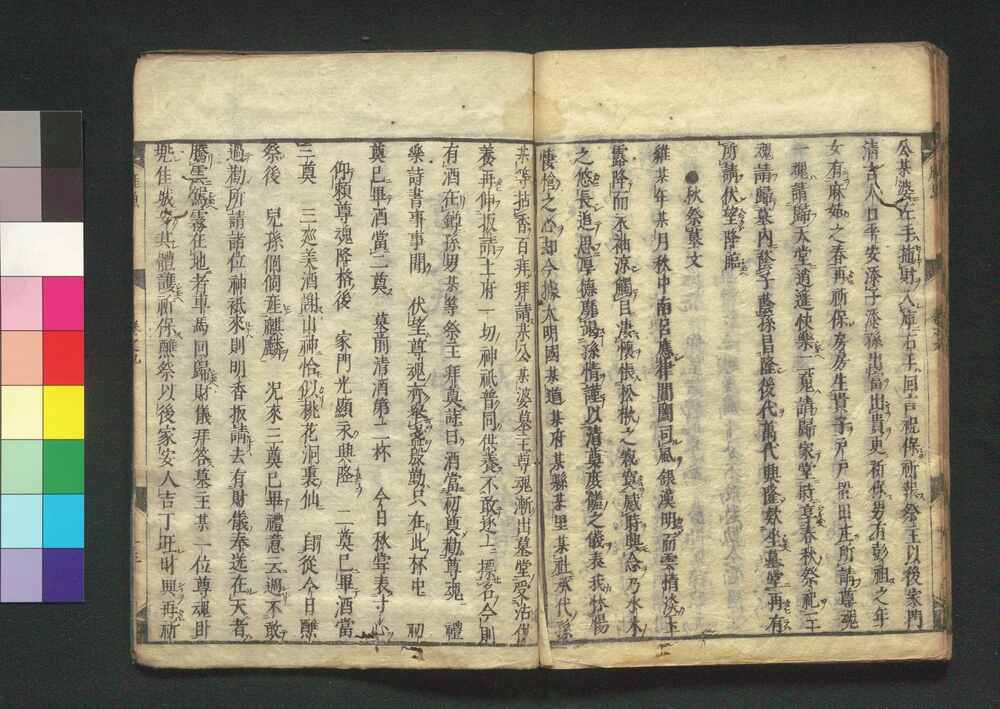 公某婆在手抽財入庫右王回言祝保祈報祭王以後家門
清吉人口平安添子添孫出富出貴更祈保男有彭祖之年
女有麻姑之春再祈保房房生貴子戸戸出正所請尊魂
一魂請歸天堂逍遥快樂一魂請歸家堂時享春秋祭祀二干
魂請歸墓内蔭子蔭孫昌隆後代萬代興隆欽坐墓堂再有
所請伏望降臨
●秋祭墓文
維某年某月秋中南呂應律閶闔司風銀漢明而雲悄淡玉
露降而永袖涼觸目淒懷悵松楸之寂寞感時興念乃水木
之悠長追思厚德孫情謹以清菓庶饈之儀表我怵惕
悽愴之心却今據大明國某道某府某縣某里某社承代孫
某等拈香百拜拜請某公某婆墓主尊魂漸出墓堂受沾供
養再伸扳請土府一切神祇普同供養不敢逐上標名今則
有酒在鱒孫男某等祭主拜奠詩曰酒當初奠勸尊魂 禮
樂詩書事事聞 伏望尊魂亦舉盞殷勤只在此杯中 初
奠已畢酒當二奠 墓前清酒第二杯 今日秋堂表寸心
仰賴尊魂降格後 家門光顯永興隆 二奠已畢酒當
三奠 三廵美酒謝山神恰似桃花洞裏仙 自從今日醮
祭後 兒孫個個産麒麟 况來三奠已畢禮意云週不敢
過勸所請諸位神祇來則明香扳請去有財儀奉送在天者
騰雲駕霧在地者車馬回歸財儀拜答墓主某一位尊魂
共體護祈保醮祭以後家安人吉丁旺財興再祈